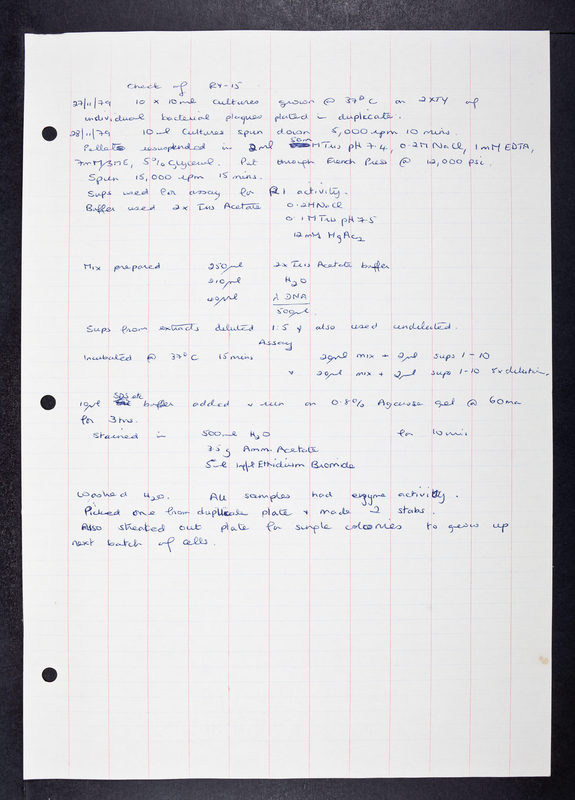 Check of RY-15
27/11/79 10 x 10ml cultures grown @ 37°C on 2XTY of
individual bacterial plaques plated in duplicate.
28/11/79 10ml cultures spun down 5,000 rpm 10 mins.
Pellets resuspended in 2ml 50mM Tris pH 7.4, 0.2M NaCl, 1mM EDTA,
7mM βME, 5% Glycerol. Put through French Press @ 12,000 psi.
Spun 15,000 rpm 15 mins.
Sups used for assay for R1 activity.
Buffer used 2x Tris Acetate 0.2M NaCl
0.1M Tris pH 7.5
12mM MgAc₂
Mix prepared 250μl 2x Tris Acetate buffer
210μl H₂O
40μl λ DNA
500μl
Sups from extracts diluted 1:5 & also used undiluted.
Assay
Incubated @ 37°C 15mins 20μl mix + 2μl sups 1-10
& 20μl mix + 2μl sups 1-10 5x dilution.
10μl SDS etc buffer added & run on 0.8% Agarose gel @ 60ma
for 3 hrs.
Stained in 500ml H₂O for 10 mins
35g Amm. Acetate
5ml Ethidium Bromide
Washed H₂O. All samples had enzyme activity.
Picked one from duplicate plate & made 2 stabs.
Also streaked out plate for single colonies to grow up
next batch of cells.